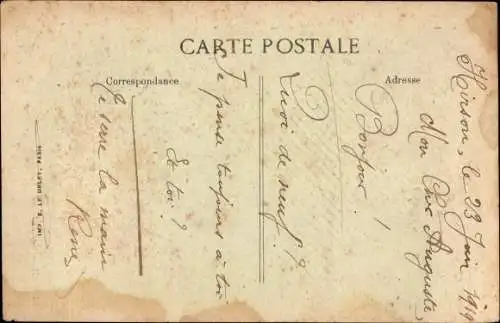 CARTE POSTALE
Correspondance
Adresse
Hirson, le 23 Juin 1919
Mon Cher Auguste,
Bonjour !
Quoi de neuf ?
Je pense toujours à toi
Et toi ?
Te serre la main
René